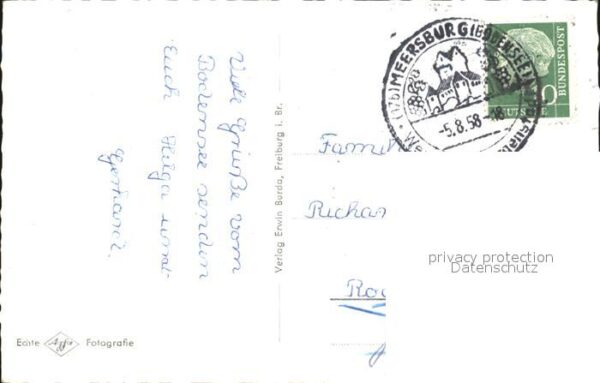 Viele Grüße vom
Bodensee senden
Euch Helga und
Gerhard.
Echte Agfa Fotografie
Verlag Erwin Burda, Freiburg i. Br.
(17b) MEERSBURG (BODENSEE)
-5.8.58-18
DEUTSCHE
BUNDESPOST
Famil
Richar
Ro
privacy protection
Datenschutz